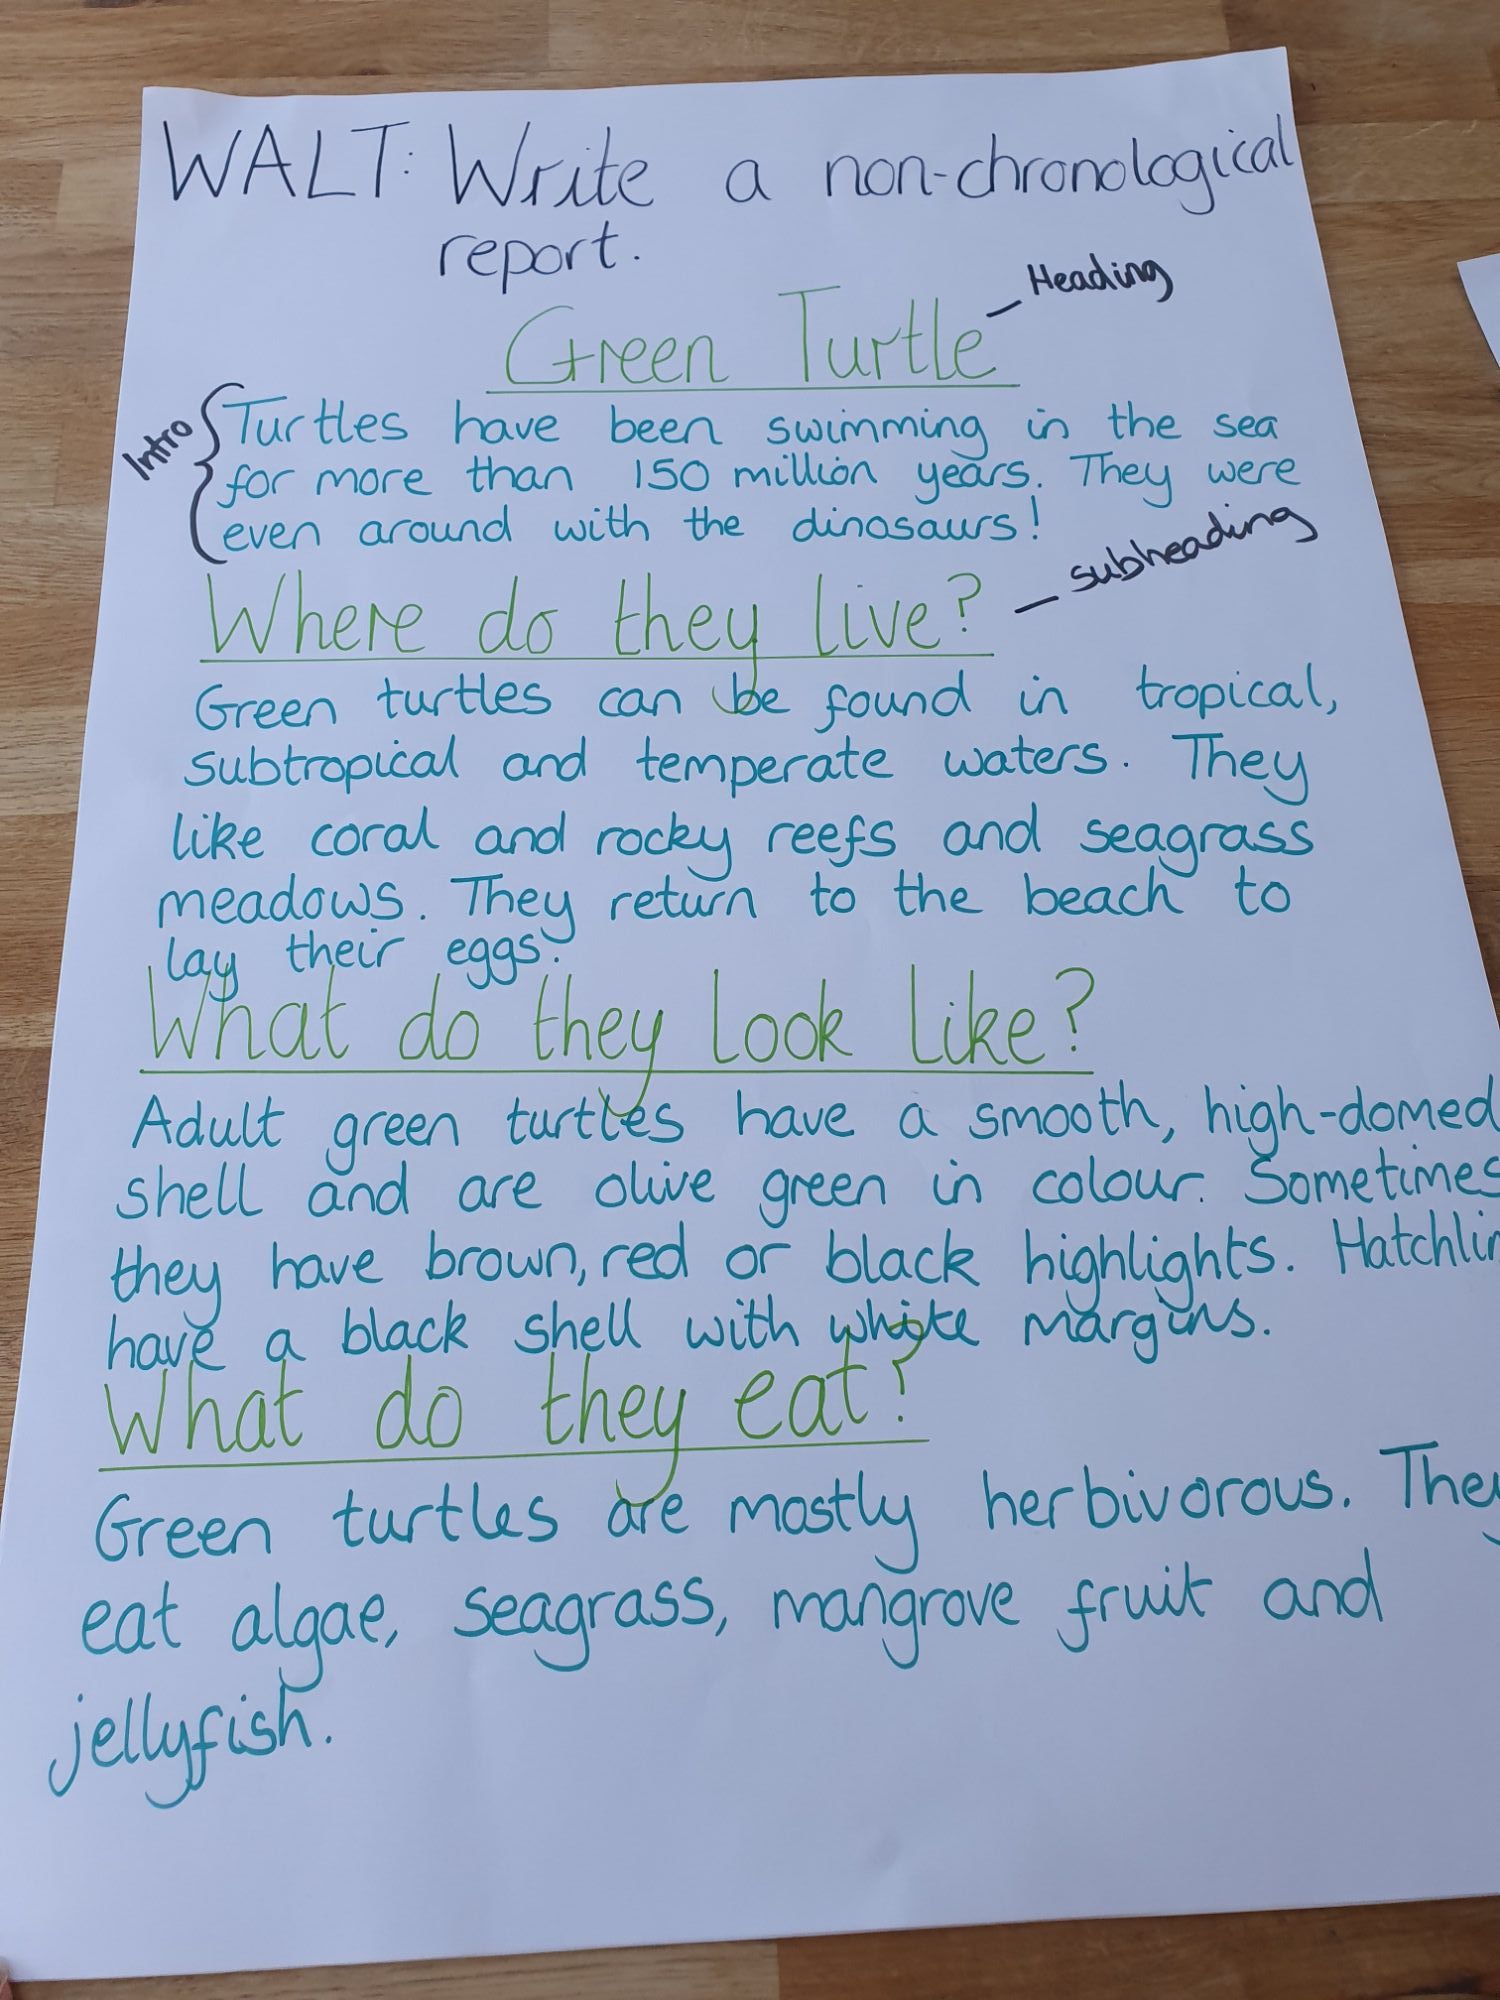 WALT: Write a non-chronological
report.
Heading
Green Turtle
Intro
Turtles have been swimming in the sea
for more than 150 million years. They were
even around with the dinosaurs!
subheading
Where do they live?
Green turtles can be found in tropical,
subtropical and temperate waters. They
like coral and rocky reefs and seagrass
meadows. They return to the beach to
lay their eggs.
What do they look like?
Adult green turtles have a smooth, high-domed
shell and are olive green in colour. Sometimes
they have brown, red or black highlights. Hatchlin
have a black shell with white margins.
What do they eat?
Green turtles are mostly herbivorous. They
eat algae, seagrass, mangrove fruit and
jellyfish.